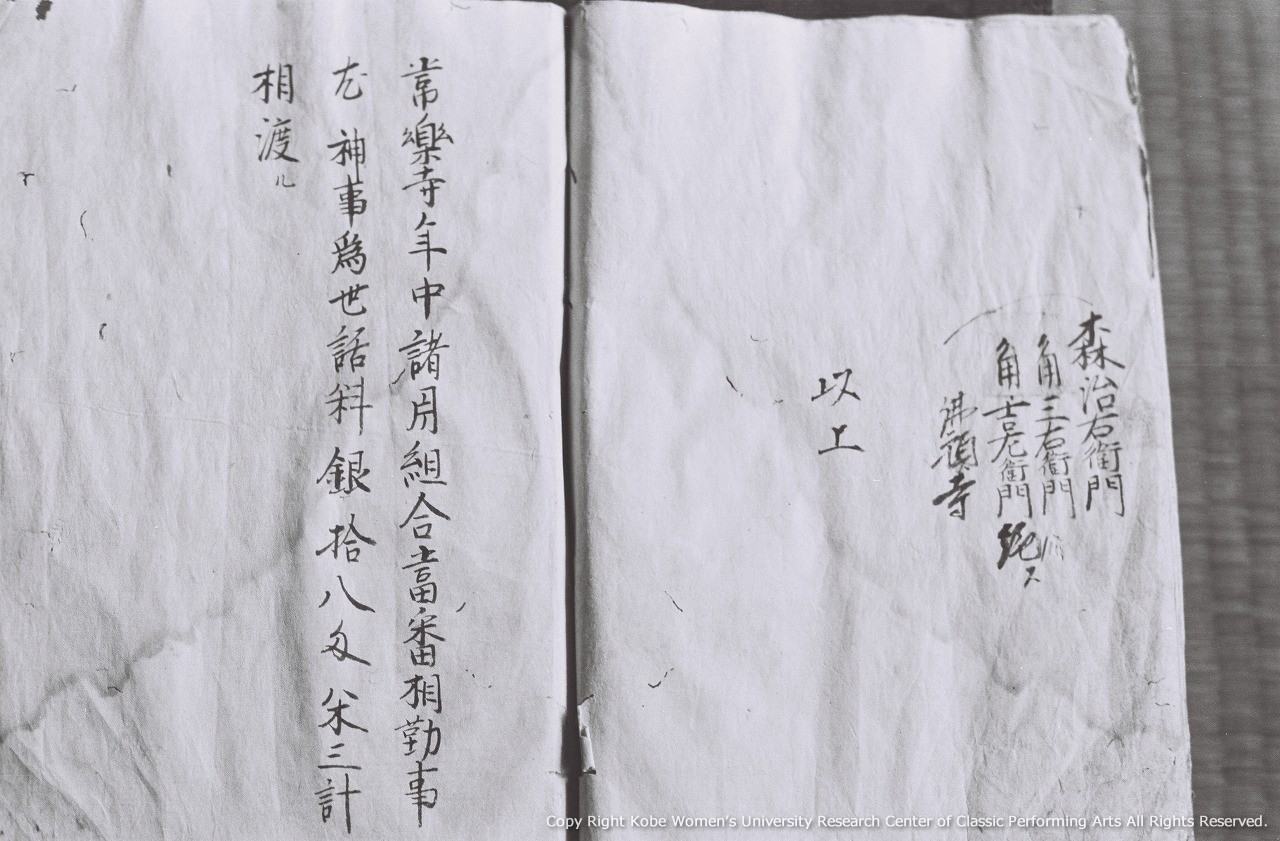 森治右衛門
角三右衛門
角吉左衛門
佛頂寺
以上
常樂寺年中諸用組合當番相勤事
左神事為世話料銀拾八匁米三計
相渡ル
Copy Right Kobe Women's University Research Center of Classic Performing Arts All Rights Reserved.